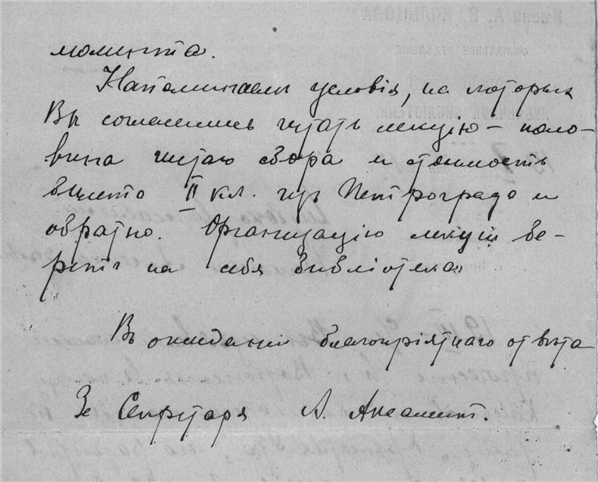 момента.
Напоминаем условія, на которых
Вы согласились читать лекцію – поло-
вина чистаго сбора и стоимость
билета II кл. из Петрограда и
обратно. Организацію лекціи бе-
рет на себя библіотека.
В ожиданіи благопріятнаго отвѣта
За Секретаря А.